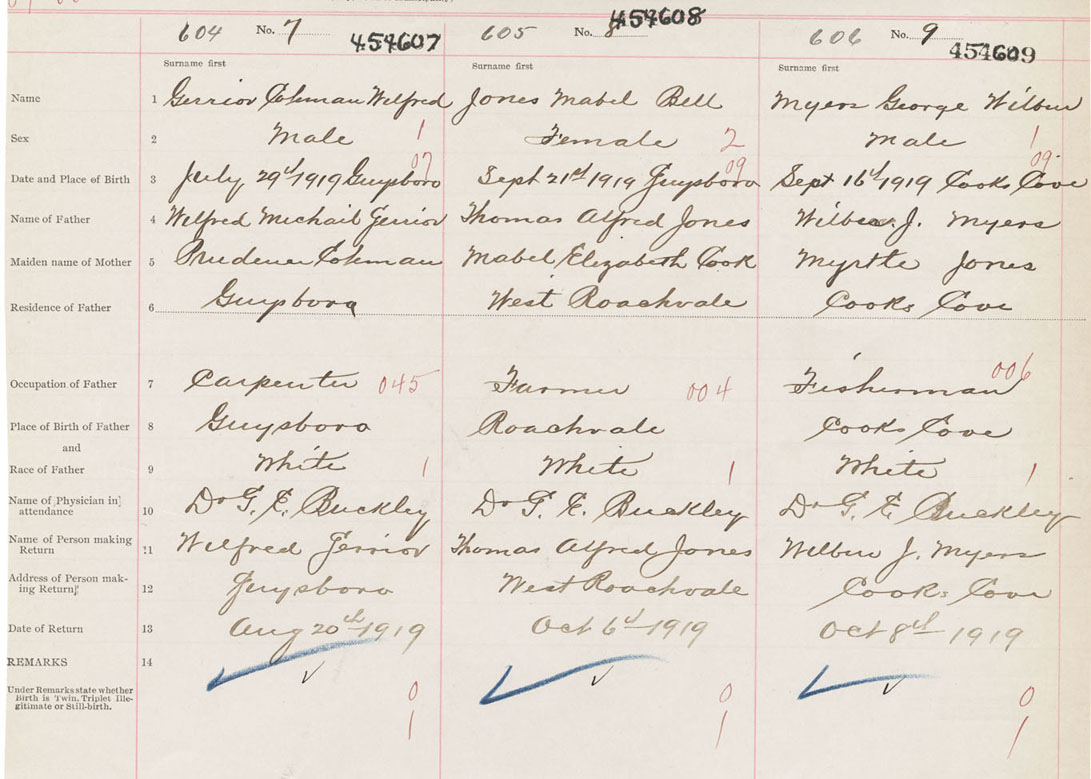 604 No. 7 454607 605 No. 8 454608 606 No. 9 454609
Surname first Surname first Surname first
Name 1 Gerrior Cohman Wilfred Jones Mabel Bell Myers George Wilbur
Sex 2 Male 1 Female 2 Male 1
07 09 09
Date and Place of Birth 3 July 29th 1919 Guysboro Sept 21st 1919 Guysboro Sept 16th 1919 Cooks Cove
Name of Father 4 Wilfred Michail Gerrior Thomas Alfred Jones Wilbur J. Myers
Maiden name of Mother 5 Cohman Mabel Elizabeth Cook Myrtle Jones
Residence of Father 6 Guysboro West Roachvale Cooks Cove
Occupation of Father 7 Carpenter 045 Farmer 004 Fisherman 006
Place of Birth of Father 8 Guysboro Roachvale Cooks Cove
and
Race of Father 9 White 1 White 1 White 1
Name of Physician in
attendance 10 Dr G. E. Buckley Dr G. E. Buckley Dr G. E. Buckley
Name of Person making
Return 11 Wilfred Gerrior Thomas Alfred Jones Wilbur J. Myers
Address of Person mak-
ing Return 12 Guysboro West Roachvale Cooks Cove
Date of Return 13 Aug 20th 1919 Oct 6th 1919 Oct 8th 1919
REMARKS 14
Under Remarks state whether
Birth is Twin, Triplet Ille-
gitimate or Still-birth.
0 0 0
1 1 1